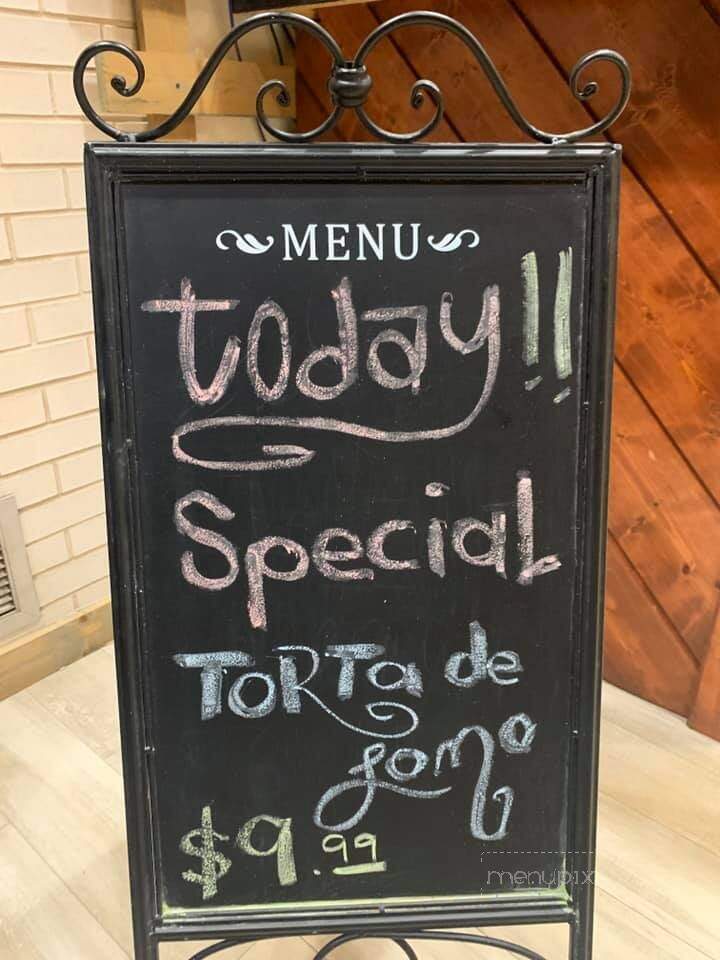 MENU
today!!
Special
TORTa de
Lomo
$9.99
menupix